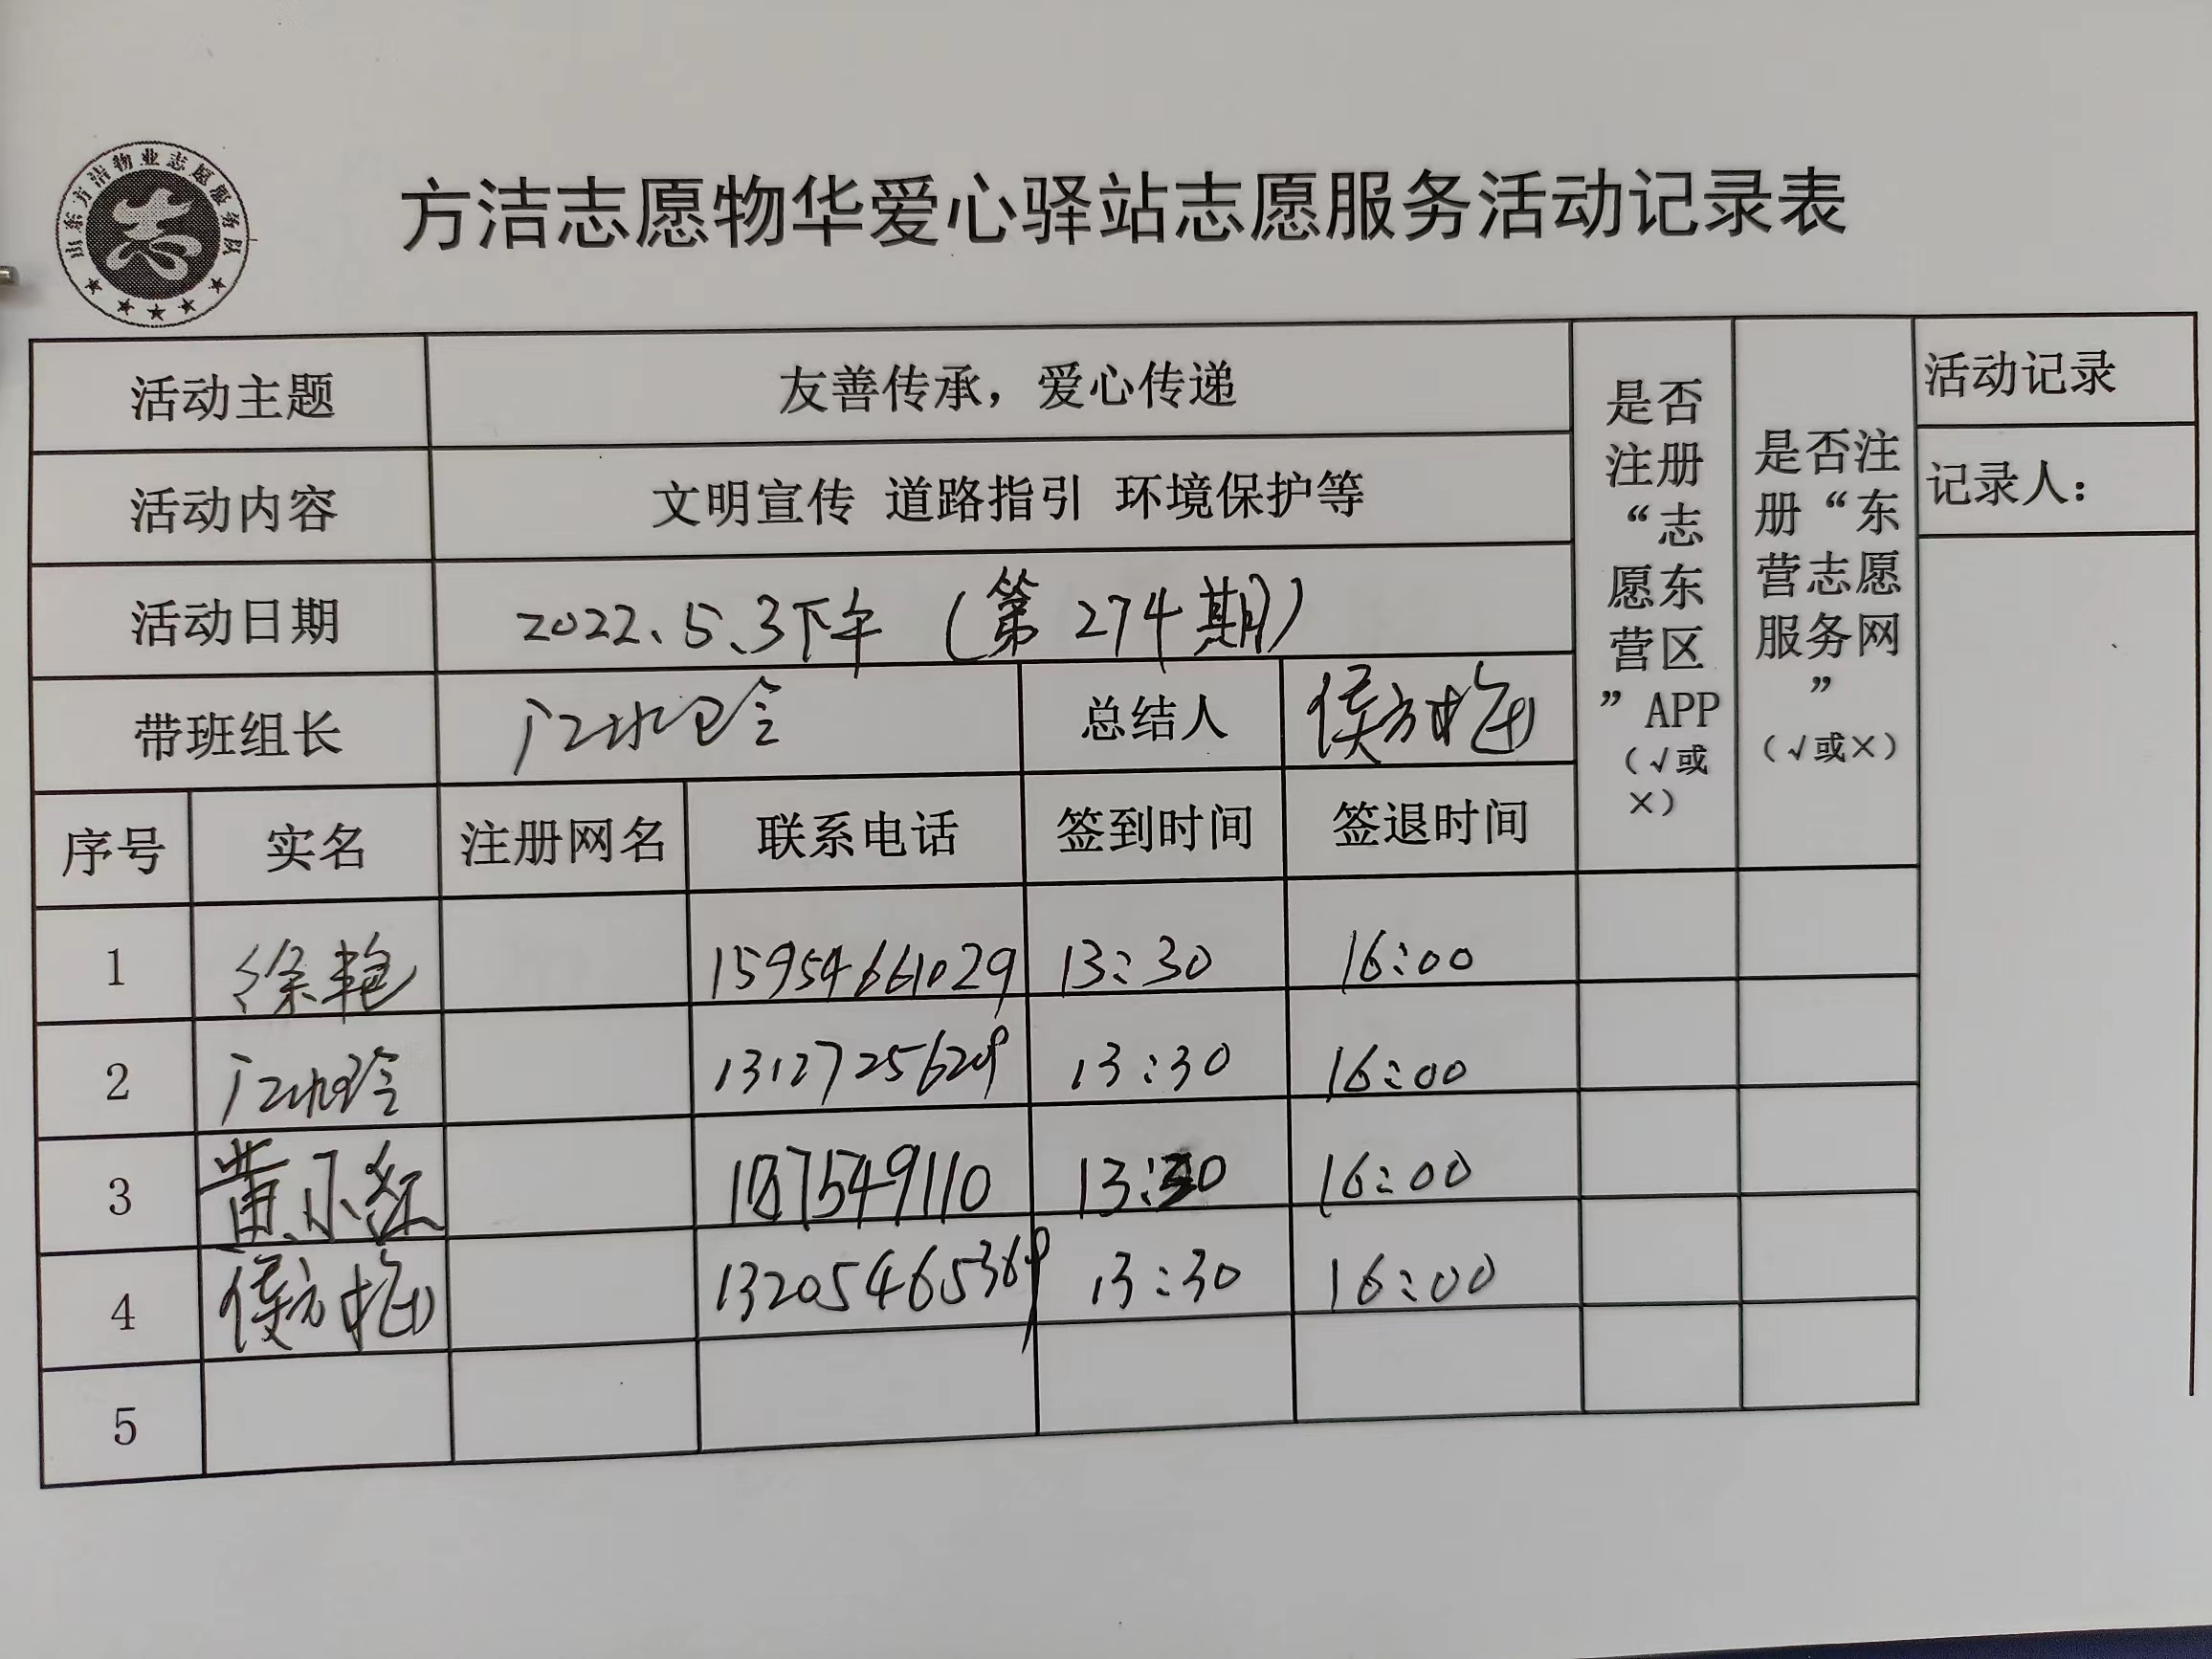 山东方洁物业志愿服务队
志
方洁志愿物华爱心驿站志愿服务活动记录表
活动主题 友善传承，爱心传递
活动内容 文明宣传 道路指引 环境保护等
活动日期 2022.5.3下午（第274期）
带班组长 总结人 侯方梅
是否注册“志愿东营区”APP（√或×）
是否注册“东营志愿服务网”（√或×）
活动记录
记录人：
序号 实名 注册网名 联系电话 签到时间 签退时间
1 徐艳 15954661029 13:30 16:00
2 13127256209 13:30 16:00
3 黄小红 13:30 16:00
4 侯方梅 13205465369 13:30 16:00
5